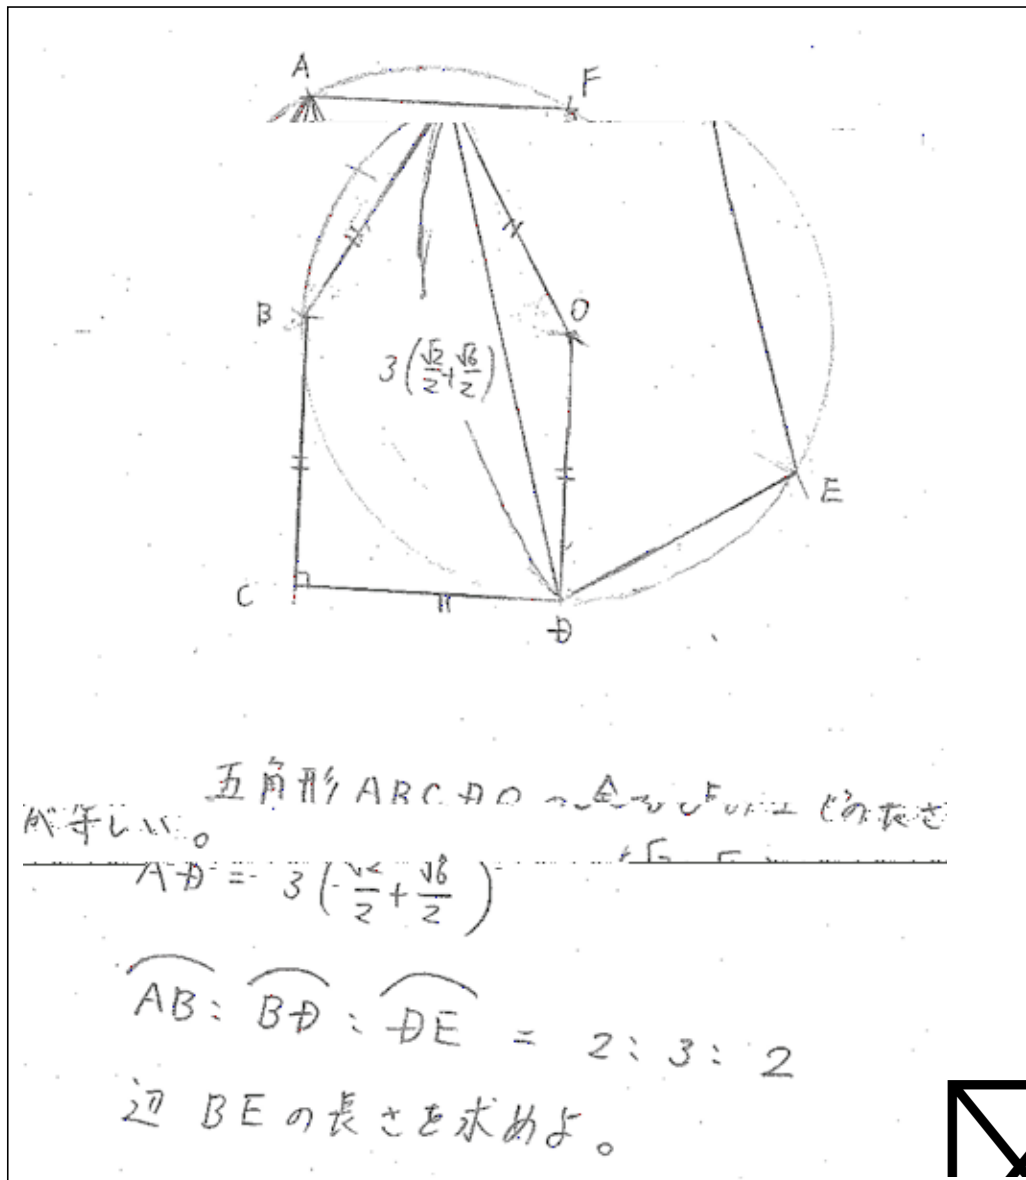 A
F
B
O
3(√2/2+√6/2)
E
C
D
五角形ABCDO
が等しい。
AD = 3(√2/2+√6/2)
AB:BD:DE = 2:3:2
辺 BEの長さを求めよ。